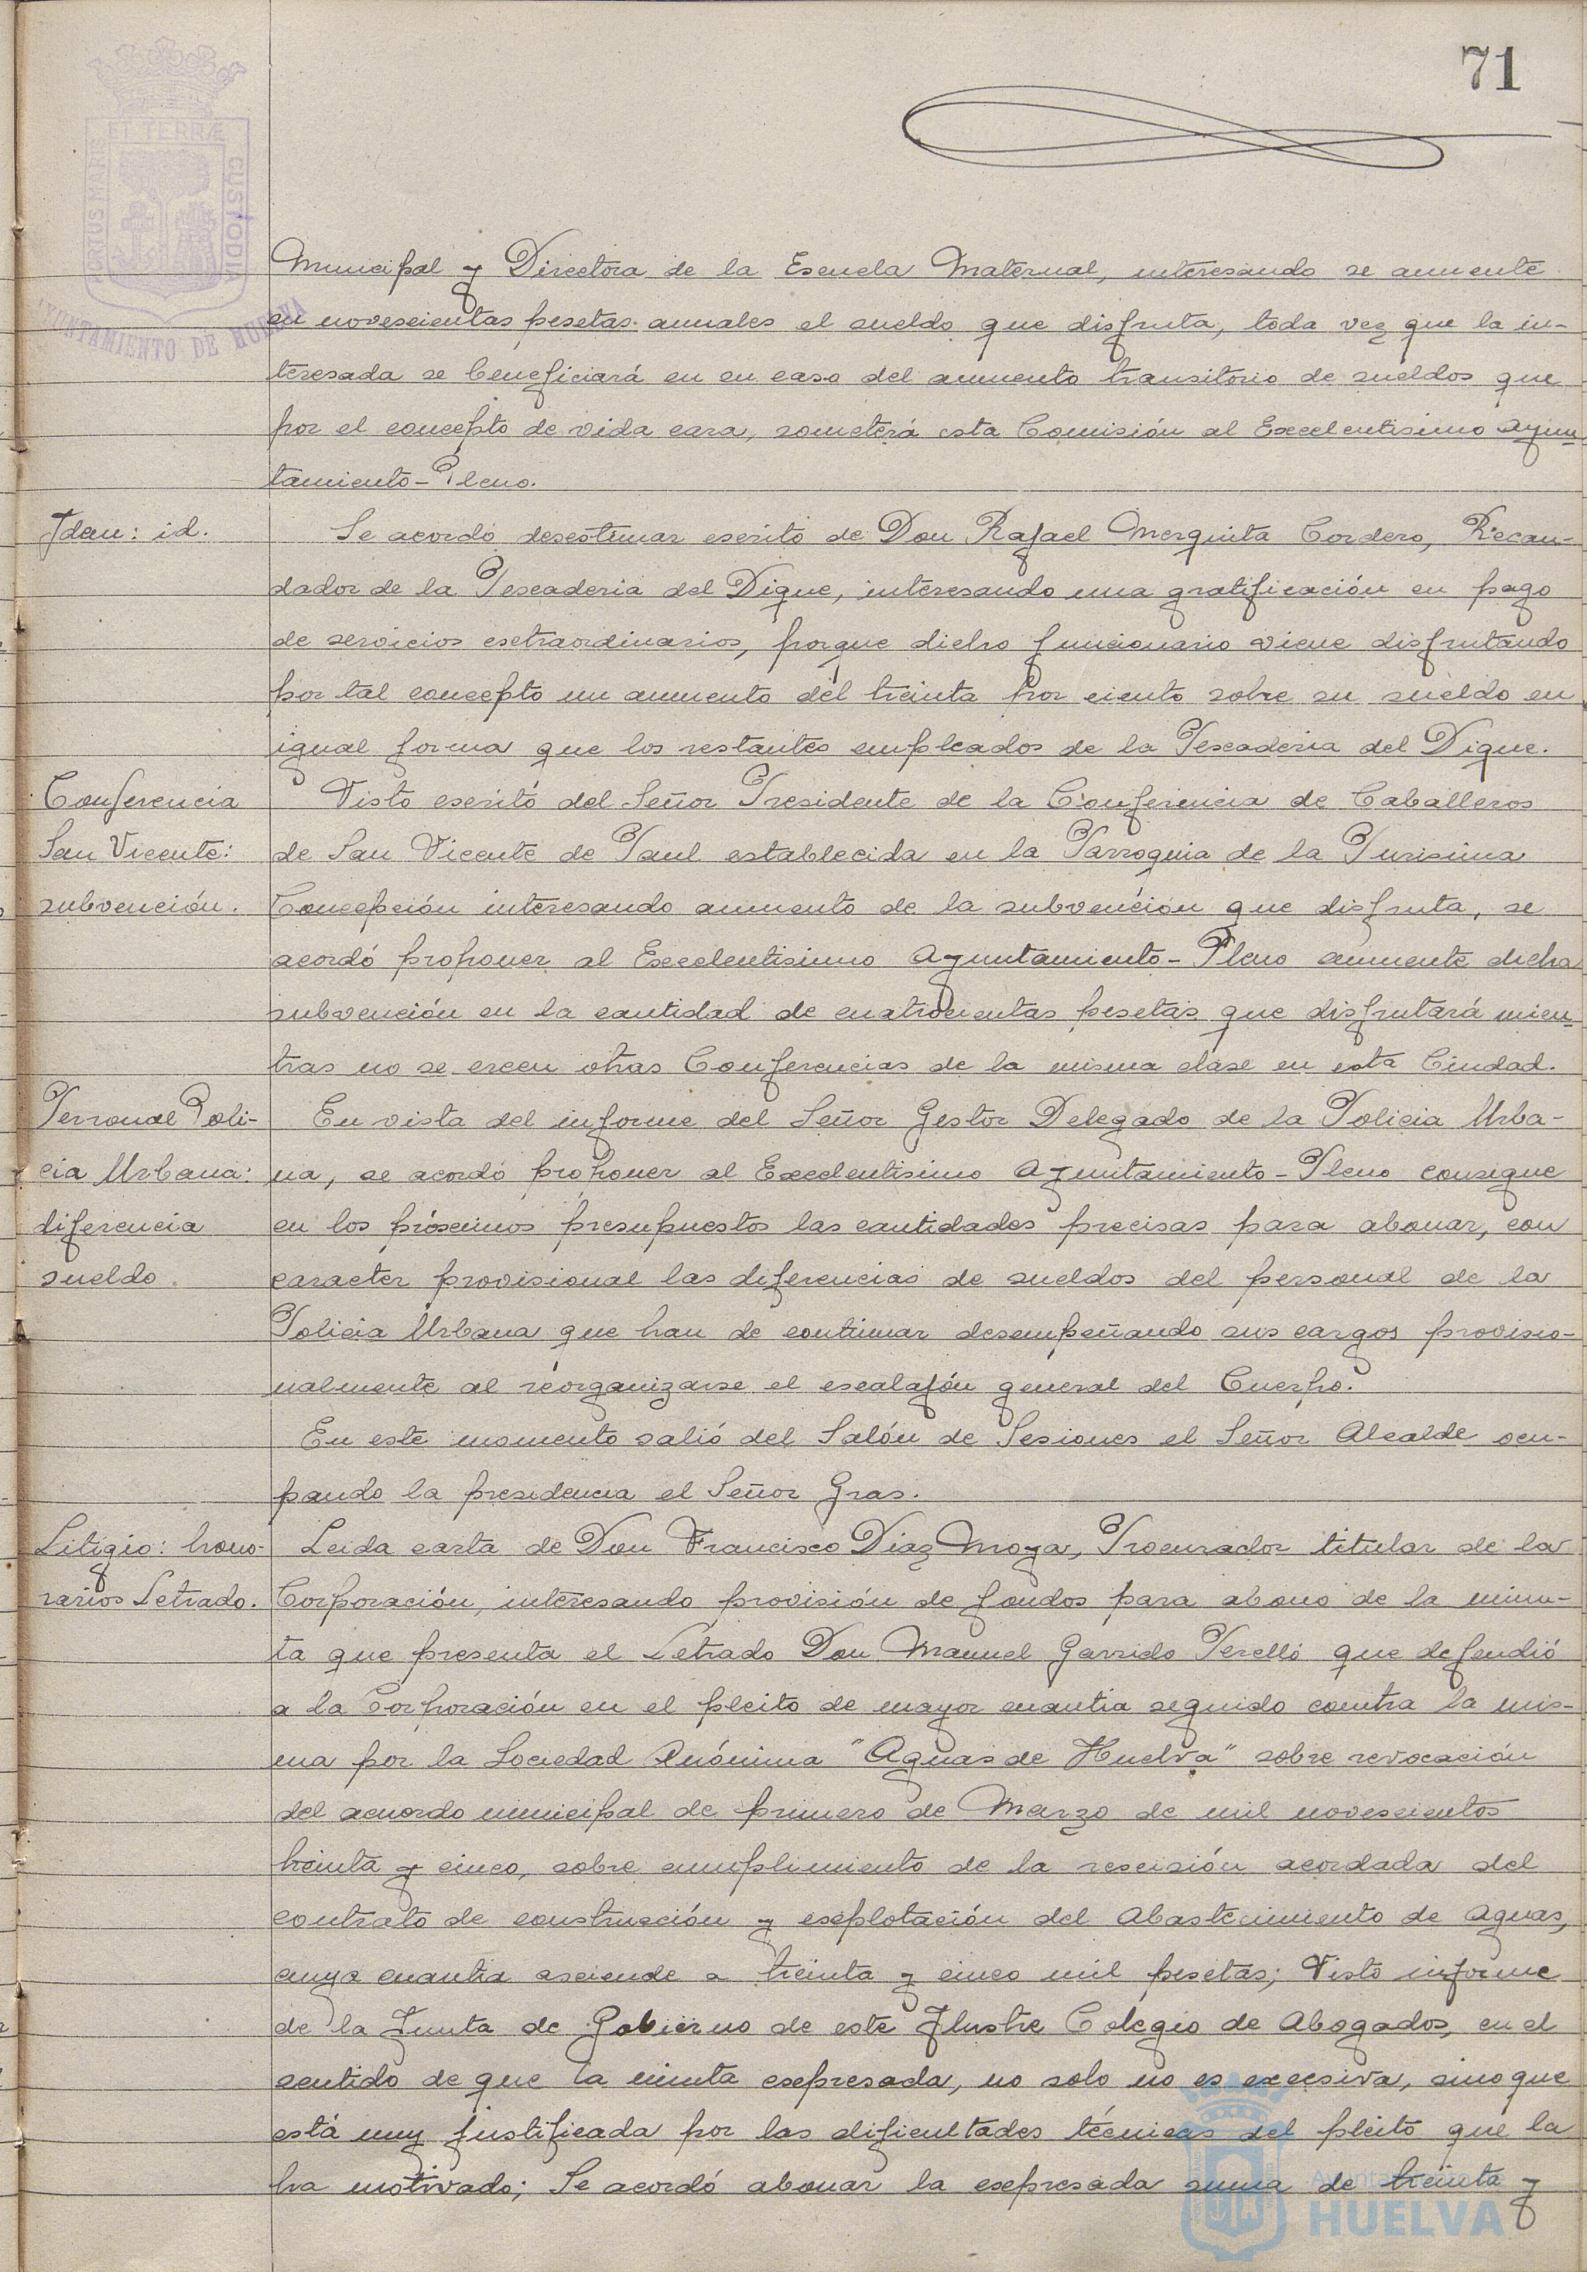 71
ET TERRÆ
PORTUS MARIS
CUSTODIA
AYUNTAMIENTO DE HUELVA
Municipal y Directora de la Escuela Maternal, interesando se aumente
en novescientas pesetas anuales el sueldo que disfruta, toda vez que la in-
teresada se beneficiará en en caso del aumento transitorio de sueldos que
por el concepto de vida cara, someterá esta Comisión al Excelentisimo Ayun-
tamiento-Pleno.
Idem: id.
Se acordó desestimar escrito de Don Rafael Merquita Cordero, Recau-
dador de la Pescaderia del Dique, interesando una gratificación en pago
de servicios extraordinarios, porque dicho funcionario viene disfrutando
por tal concepto un aumento del treinta por ciento sobre su sueldo en
igual forma que los restantes empleados de la Pescaderia del Dique.
Conferencia
San Vicente:
subvención.
Visto escrito del Señor Presidente de la Conferencia de Caballeros
de San Vicente de Paul establecida en la Parroquia de la Purisima
Concepción interesando aumento de la subvención que disfruta, se
acordó proponer al Excelentisimo Ayuntamiento-Pleno aumente dicha
subvención en la cantidad de cuatrocientas pesetas que disfrutará mien-
tras no se creen otras Conferencias de la misma clase en esta Ciudad.
Personal Poli-
cia Urbana:
diferencia
sueldo.
En vista del informe del Señor Gestor Delegado de la Policia Urba-
na, se acordó proponer al Excelentisimo Ayuntamiento-Pleno consigue
en los próximos presupuestos las cantidades precisas para abonar, con
caracter provisional las diferencias de sueldos del personal de la
Policia Urbana que han de continuar desempeñando sus cargos provisio-
nalmente al reorganizarse el escalafón general del Cuerpo.
En este momento salió del Salón de Sesiones el Señor Alcalde ocu-
pando la presidencia el Señor Gras.
Litigio: hono-
rarios Letrado.
Leida carta de Don Francisco Diaz Moya, Procurador titular de la
Corporación, interesando provisión de fondos para abono de la minu-
ta que presenta el Letrado Don Manuel Garrido Perelló que defendió
a la Corporación en el pleito de mayor cuantia seguido contra la mis-
ma por la Sociedad Anónima "Aguas de Huelva" sobre revocación
del acuerdo municipal de primero de Marzo de mil novescientos
treinta y cinco, sobre cumplimiento de la rescisión acordada del
contrato de construcción y explotación del Abastecimiento de Aguas,
cuya cuantia asciende a treinta y cinco mil pesetas; Visto informe
de la Junta de Gobierno de este Ilustre Colegio de Abogados, en el
sentido de que la minuta expresada, no solo no es excesiva, sino que
está muy justificada por las dificultades técnicas del pleito que la
ha motivado; Se acordó abonar la expresada suma de treinta y
Ayuntamiento de
HUELVA